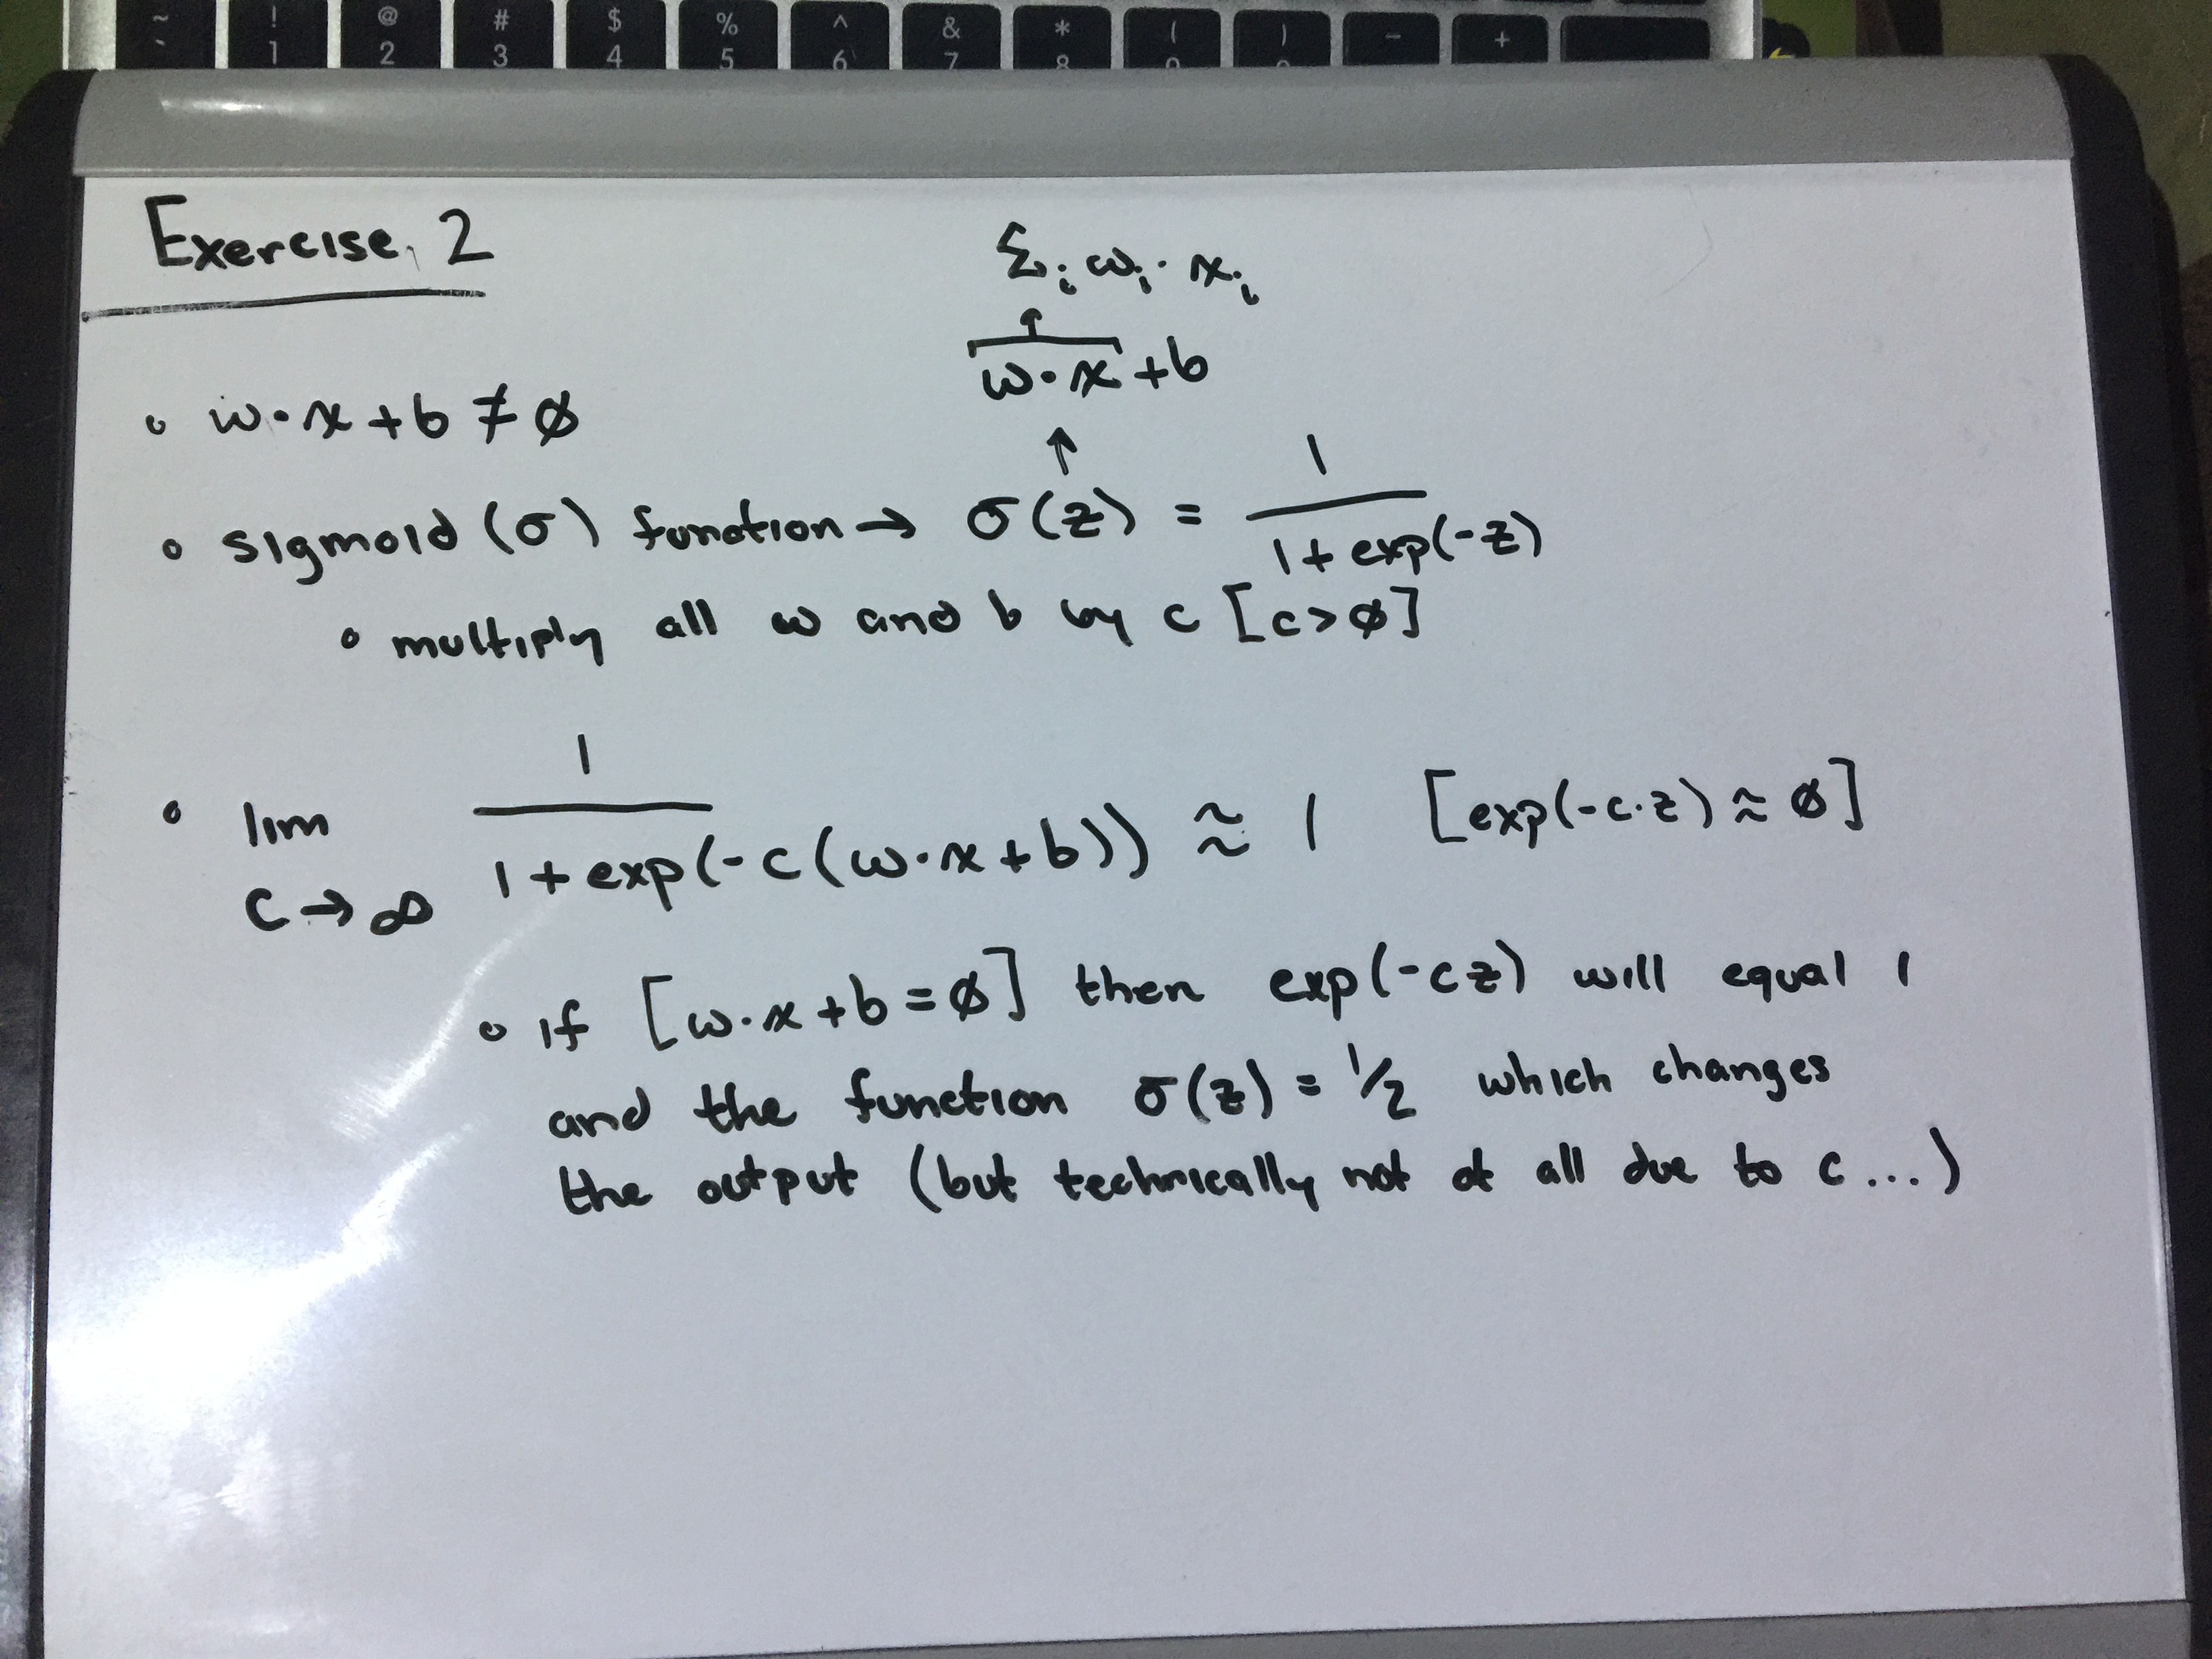 ~ ! @ # $ % ^ & * ( ) - +
` 1 2 3 4 5 6 7 8
Exercise 2
Σᵢ ωᵢ · xᵢ
ω·x + b
↑
• ω·x + b ≠ ∅
• sigmoid (σ) function → σ(z) = 1 / (1 + exp(-z))
• multiply all ω and b by c [c > ∅]
• lim c→∞ 1 / (1 + exp(-c(ω·x + b))) ≈ 1 [exp(-c·z) ≈ ∅]
• if [ω·x + b = ∅] then exp(-cz) will equal 1
and the function σ(z) = 1/2 which changes
the output (but technically not at all due to c...)